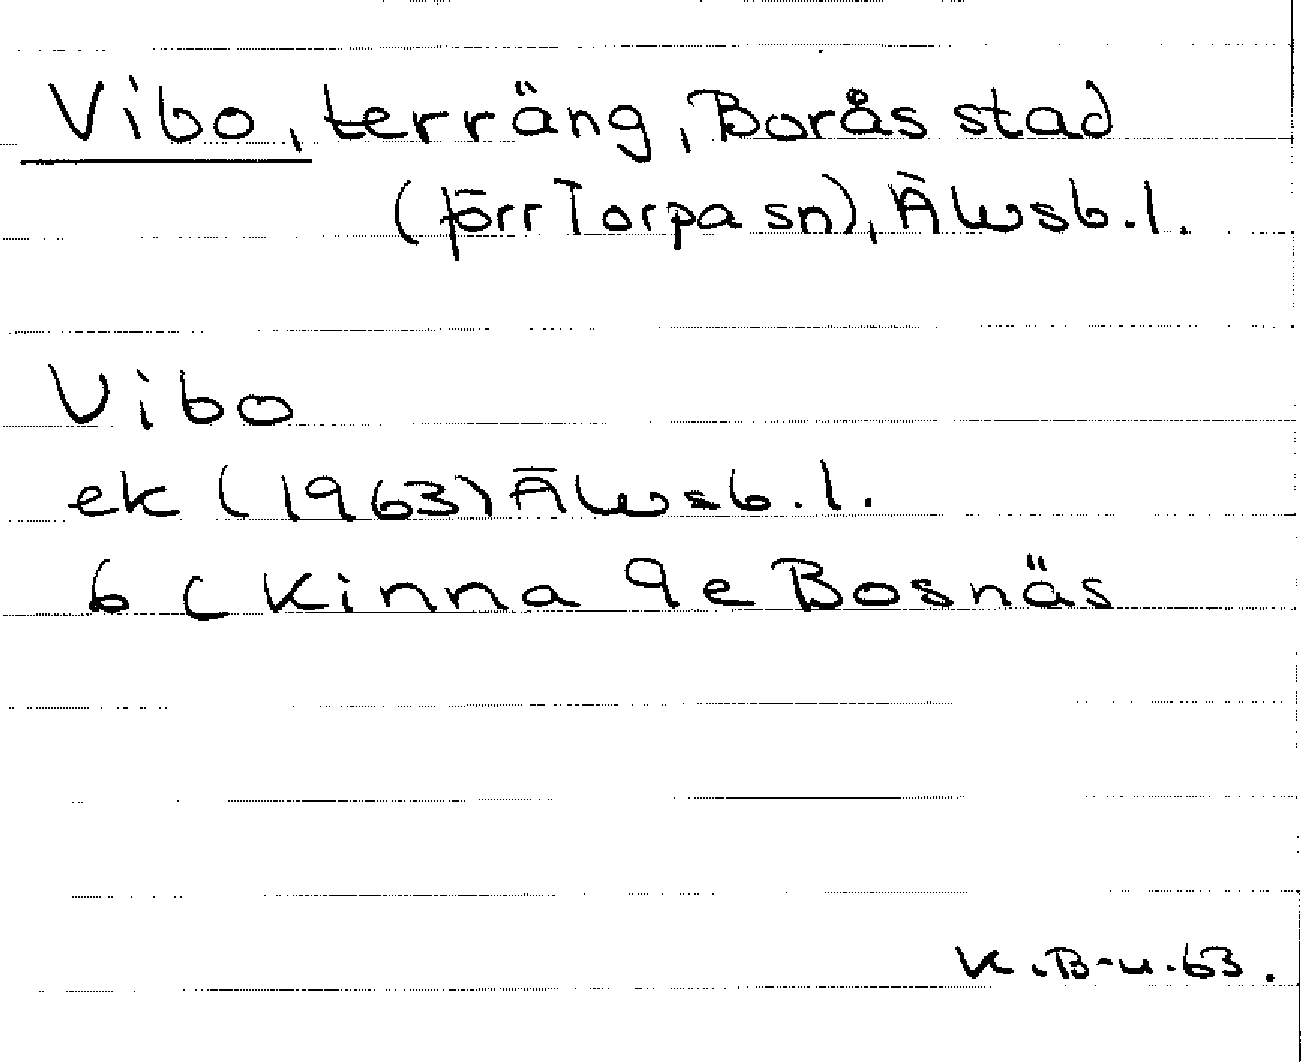 Vibo, terräng, Borås stad
(förr Torpa sn), Älvsb. l.
Vibo
ek (1963) Älvsb. l.
6 C Kinna 9e Bosnäs
K. B-u. 63.